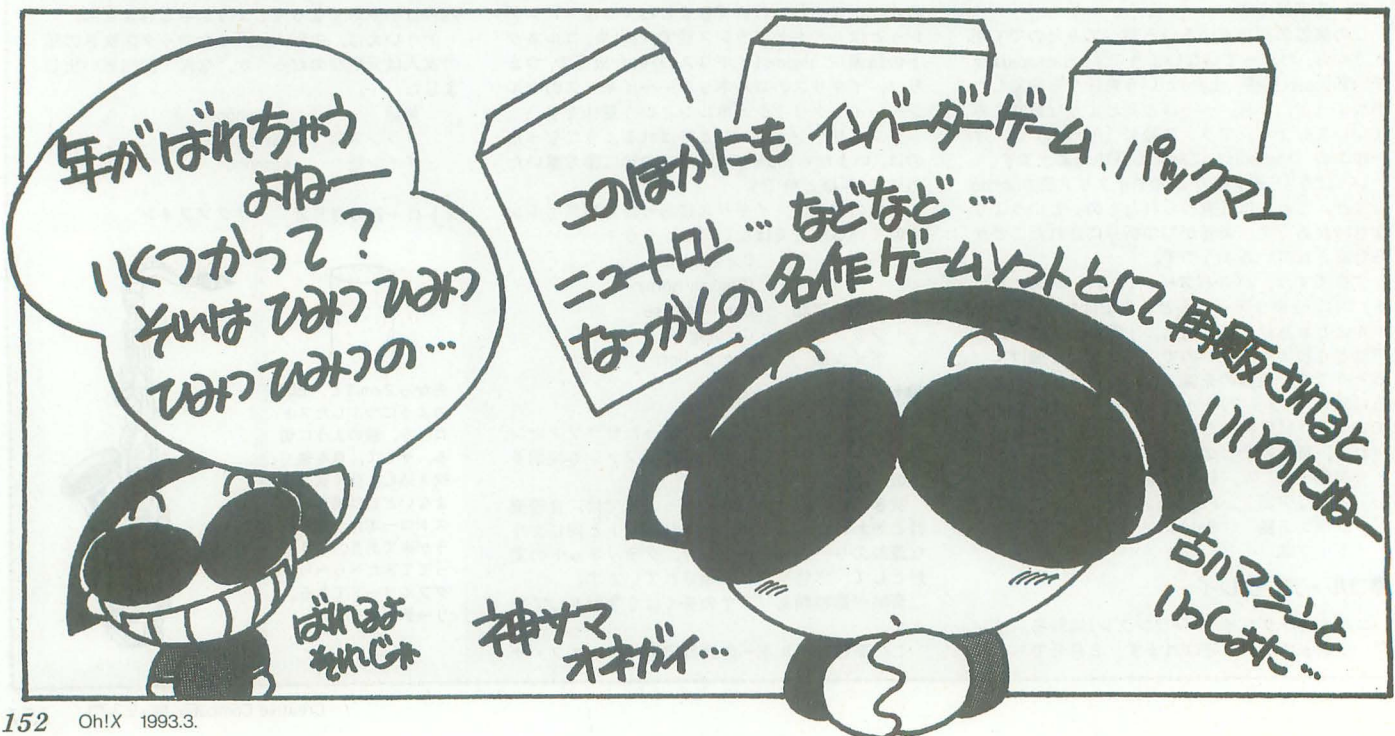 年がばれちゃう
よねー
いくつかって?
それは ひみつ ひみつ
ひみつ ひみつの…
ばれるよ
それじゃ
このほかにも インベーダーゲーム パックマン
ニュートロン… などなど…
なつかしの 名作ゲームソフトとして 再販されると
いいのにねー
古いマシンと
いっしょだ…
神サマ
オネガイ…
152 Oh!X 1993.3.